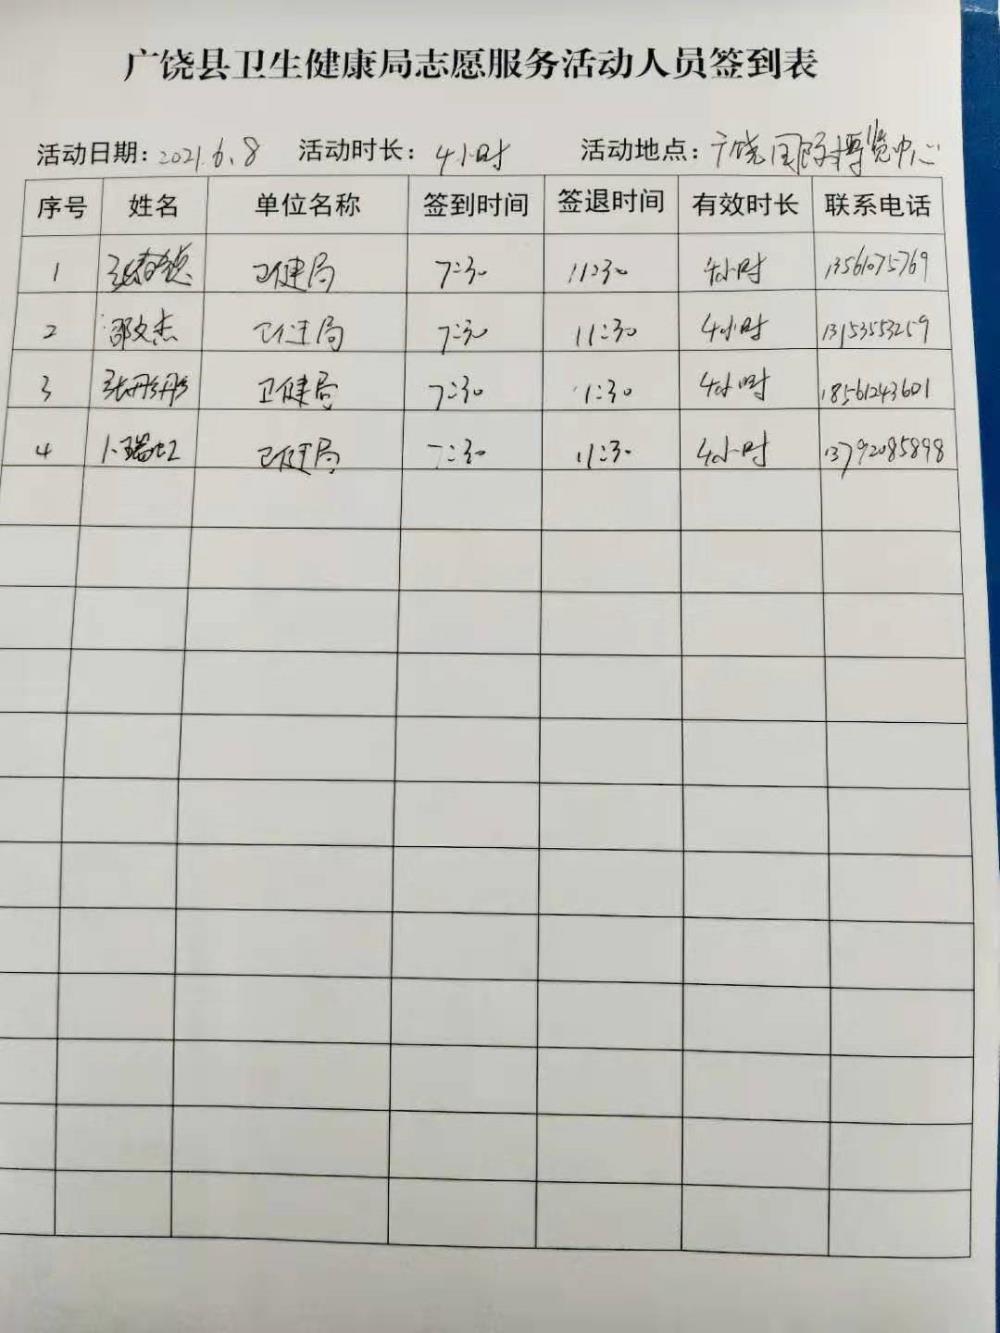 广饶县卫生健康局志愿服务活动人员签到表
活动日期：2021.6.8 活动时长：4小时 活动地点：广饶国际博览中心
序号 姓名 单位名称 签到时间 签退时间 有效时长 联系电话
1 卫健局 7:30 11:30 4小时 13561075769
2 邵文杰 卫健局 7:30 11:30 4小时 13153553259
3 张彤彤 卫健局 7:30 11:30 4小时 18561243601
4 卜瑞虹 卫健局 7:30 11:30 4小时 13792085898